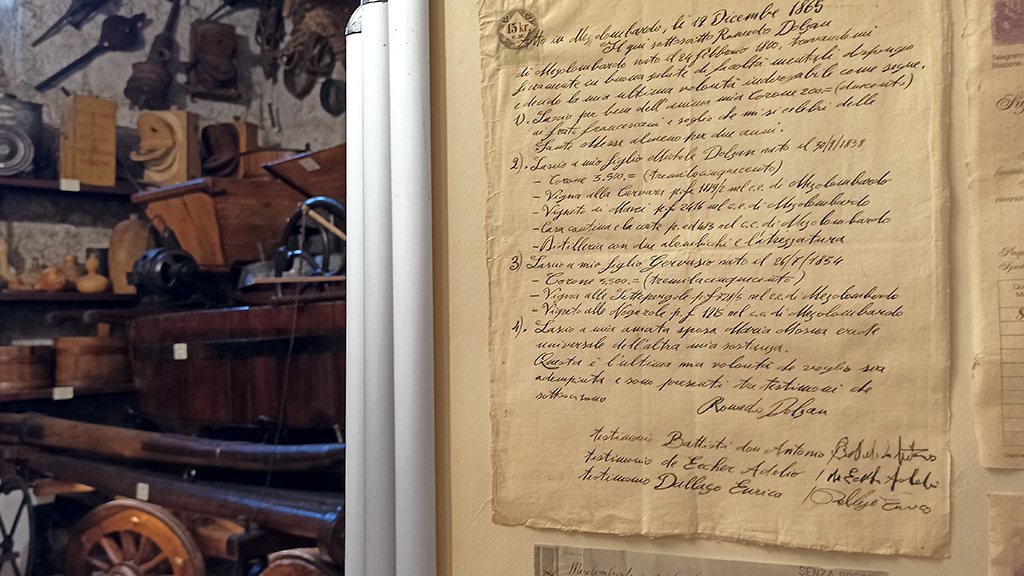 15 kr
Fatto in Mezolombardo, le 12 Dicembre 1865
Il qui sottoscritto Romedo Dolzan
di Mezolombardo nato il 24 febbraio 1800, trovandomi
sicuramente in buona salute di facoltà mentali dispongo
e decido la mia ultima volontà inderogabile come segue.
1). Lascio per bene dell'anima mia Corone 200.= (duecento)
ai frati francescani e voglio che mi si celebri delle
Sante Messe almeno per due anni.
2). Lascio a mio figlio Michele Dolzan nato il 30/1/1838
- Corone 3.500.= (tremilacinquecento)
- Vigna alla Cervara p.f. nel c.c. di Mezolombardo
- Vigneto in Marei p.f. nel c.c. di Mezolombardo
- Casa cantina e la corte p.ed. nel c.c. di Mezolombardo
- Distilleria con due alambichi e l'atrezzatura
3) Lascio a mio figlio Gervasio nato il 26/8/1854
- Corone 3.500.= (tremilacinquecento)
- Vigna alle Settepergole p.f. nel c.c. di Mezolombardo
- Vigneto alle p.f. nel c.c. di Mezolombardo
4). Lascio a mia amata sposa Maria Mosna erede
universale dell'altra mia sostanza.
Questa è l'ultima mia volontà che voglio sia
adempiuta e sono presenti tre testimoni che
sottoscrivono
Romedo Dolzan
testimonio Battisti don Antonio
testimonio de Eccher Adelio
testimonio Dallago Enrico
SENZA